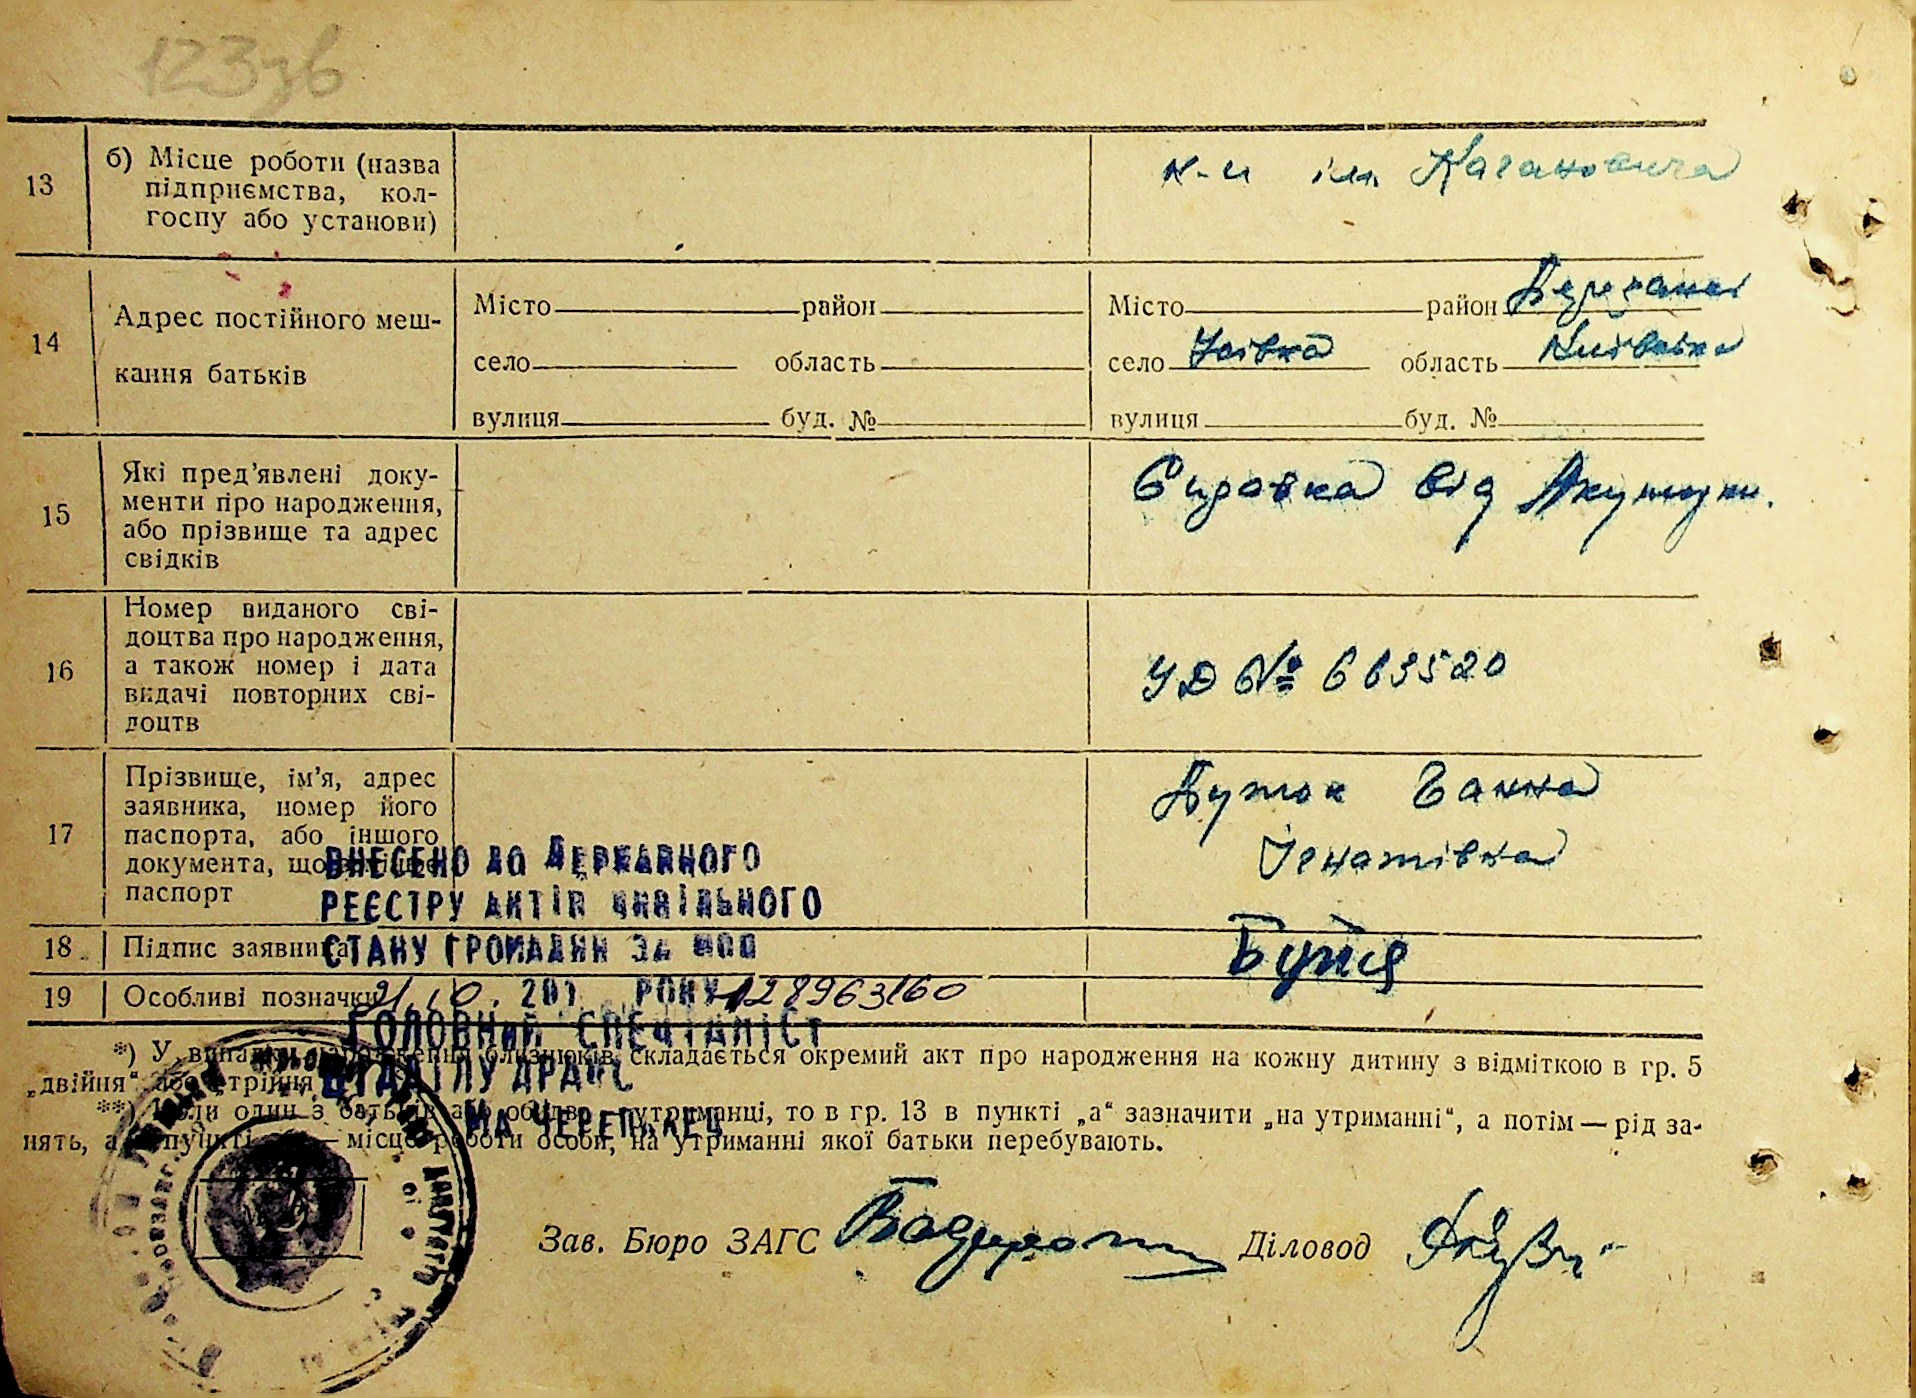 123зв
13
б) Місце роботи (назва
підприємства, кол-
госпу або установи)
к-п ім Кагановича
14
Адрес постійного меш-
кання батьків
Місто район
село область
вулиця буд. №
Місто район Березань
село Усівка область Київська
вулиця буд. №
15
Які пред’явлені доку-
менти про народження,
або прізвище та адрес
свідків
Справка від Акушерки.
16
Номер виданого сві-
доцтва про народження,
а також номер і дата
видачі повторних сві-
доцтв
УД № 663520
17
Прізвище, ім’я, адрес
заявника, номер його
паспорта, або іншого
документа, що
паспорт
Ганна
Ігнатівна
18
Підпис заявника
19
Особливі позначки
ВНЕСЕНО ДО ДЕРЖАВНОГО
РЕЄСТРУ АКТІВ ЦИВІЛЬНОГО
СТАНУ ГРОМАДЯН ЗА №00
21.10. 201 РОКУ 128963160
ГОЛОВНИЙ СПЕЦІАЛІСТ
ВІДДІЛУ ДРАЦС
*) У випадку народження близнюків складається окремий акт про народження на кожну дитину з відміткою в гр. 5
„двійня“ або „трійня
**) Коли один з батьків або обидва утриманці, то в гр. 13 в пункті „а“ зазначити „на утриманні“, а потім — рід за-
нять, а в пункті — місце роботи особи, на утриманні якої батьки перебувають.
Зав. Бюро ЗАГС
Діловод